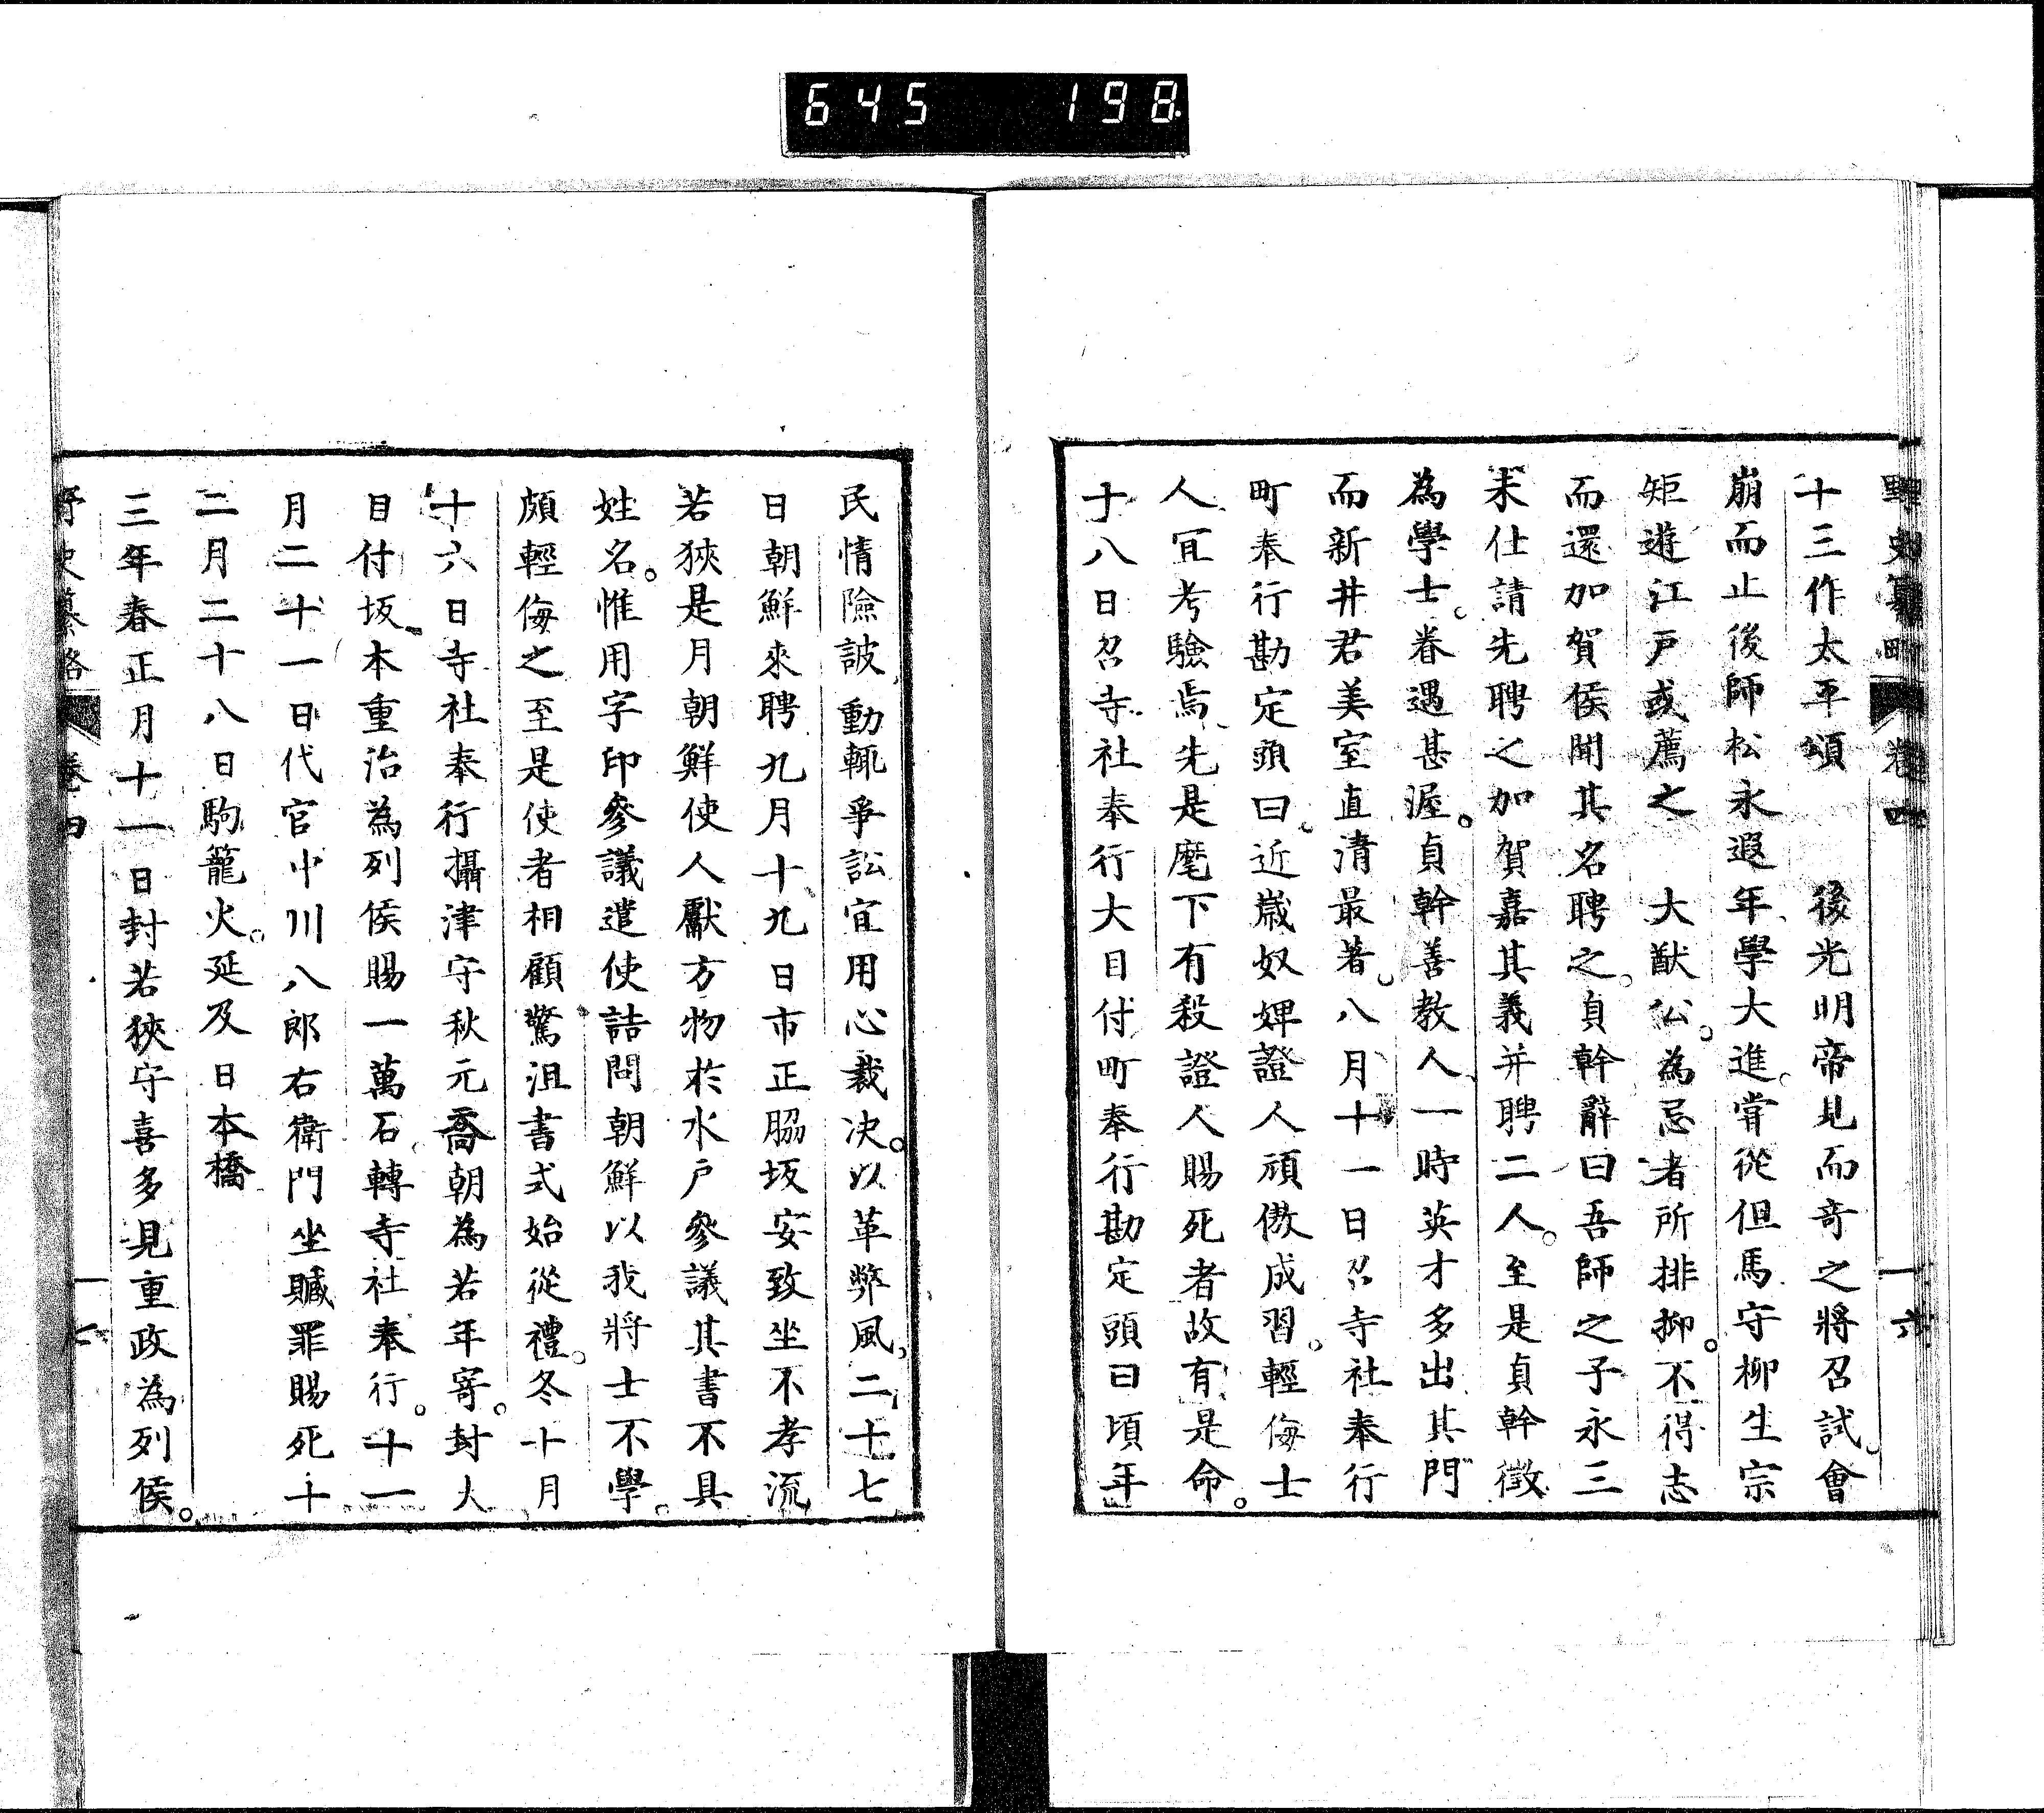 645 198
野史纂略 卷四 一六
十三作太平頌 後光明帝見而奇之將召試會
崩而止後師松永遐年學大進嘗從但馬守柳生宗
矩遊江戸或薦之 大猷公為忌者所排抑不得志
而還加賀侯聞其名聘之貞幹辭曰吾師之子永三
未仕請先聘之加賀嘉其義并聘二人至是貞幹徵
為學士眷遇甚渥貞幹善教人一時英才多出其門
而新井君美室直清最著八月十一日召寺社奉行
町奉行勘定頭曰近歳奴婢證人頑傲成習輕侮士
人冝考驗焉先是麾下有殺證人賜死者故有是命
十八日召寺社奉行大目付町奉行勘定頭曰頃年
民情險詖動輒爭訟宜用心裁决以革弊風二十七
日朝鮮來聘九月十九日市正脇坂安致坐不孝流
若狹是月朝鮮使人獻方物於水戸參議其書不具
姓名惟用字印參議遣使詰問朝鮮以我將士不學
頗輕侮之至是使者相顧驚沮書式始從禮冬十月
十六日寺社奉行攝津守秋元喬朝為若年寄封大
目付坂本重治為列侯賜一萬石轉寺社奉行十一
月二十一日代官中川八郎右衛門坐贓罪賜死十
二月二十八日駒籠火延及日本橋
三年春正月十一日封若狹守喜多見重政為列侯
野史纂略 卷四 一七